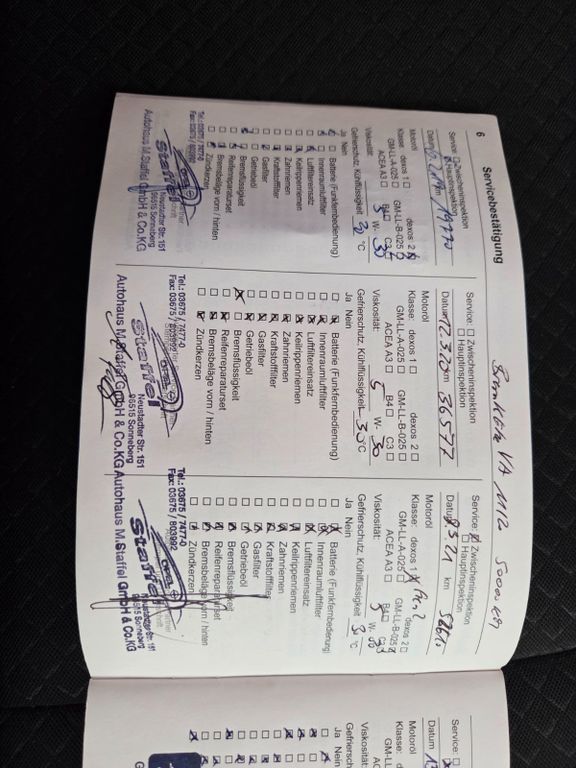 6
Servicebestätigung
Service: Zwischeninspektion
Hauptinspektion
Datum km
Motoröl
Klasse: dexos 1 dexos 2
GM-LL-A-025 GM-LL-B-025
ACEA A3 B4 C3
Viskosität: 5 W- 30
Gefrierschutz, Kühlflüssigkeit 30 °C
Ja Nein
Batterie (Funkfernbedienung)
Innenraumluftfilter
Luftfiltereinsatz
Keilrippenriemen
Zahnriemen
Kraftstofffilter
Gasfilter
Getriebeöl
Bremsflüssigkeit
Reifenreparaturset
Bremsbeläge vorn / hinten
Zündkerzen
Tel.: 03675 / 7477-0
Fax: 03675 / 803992
Staffel
Neustadter Str. 151
96515 Sonneberg
Autohaus M.Staffel GmbH & Co.KG
VA
Service: Zwischeninspektion
Hauptinspektion
Datum 12.3.20 km 36577
Motoröl
Klasse: dexos 1 dexos 2
GM-LL-A-025 GM-LL-B-025
ACEA A3 B4 C3
Viskosität: 5 W- 30
Gefrierschutz, Kühlflüssigkeit 30 °C
Ja Nein
Batterie (Funkfernbedienung)
Innenraumluftfilter
Luftfiltereinsatz
Keilrippenriemen
Zahnriemen
Kraftstofffilter
Gasfilter
Getriebeöl
Bremsflüssigkeit
Reifenreparaturset
Bremsbeläge vorn / hinten
Zündkerzen
Tel.: 03675 / 7477-0
Fax: 03675 / 803992
Staffel
Neustadter Str. 151
96515 Sonneberg
Autohaus M.Staffel GmbH & Co.KG
Service: Zwischeninspektion
Hauptinspektion
Datum km
Motoröl
Klasse: dexos 1 dexos 2
GM-LL-A-025 GM-LL-B-025
ACEA A3 B4 C3
Viskosität: 5 W- 30
Gefrierschutz, Kühlflüssigkeit °C
Ja Nein
Batterie (Funkfernbedienung)
Innenraumluftfilter
Luftfiltereinsatz
Keilrippenriemen
Zahnriemen
Kraftstofffilter
Gasfilter
Getriebeöl
Bremsflüssigkeit
Reifenreparaturset
Bremsbeläge vorn / hinten
Zündkerzen
Tel.: 03675 / 7477-0
Fax: 03675 / 803992
Staffel
Neustadter Str. 151
96515 Sonneberg
Autohaus M.Staffel GmbH & Co.KG
Service:
Datum
Motoröl
Klasse:
GM-LL
Viskosität
Gefriersch
Ja Nein